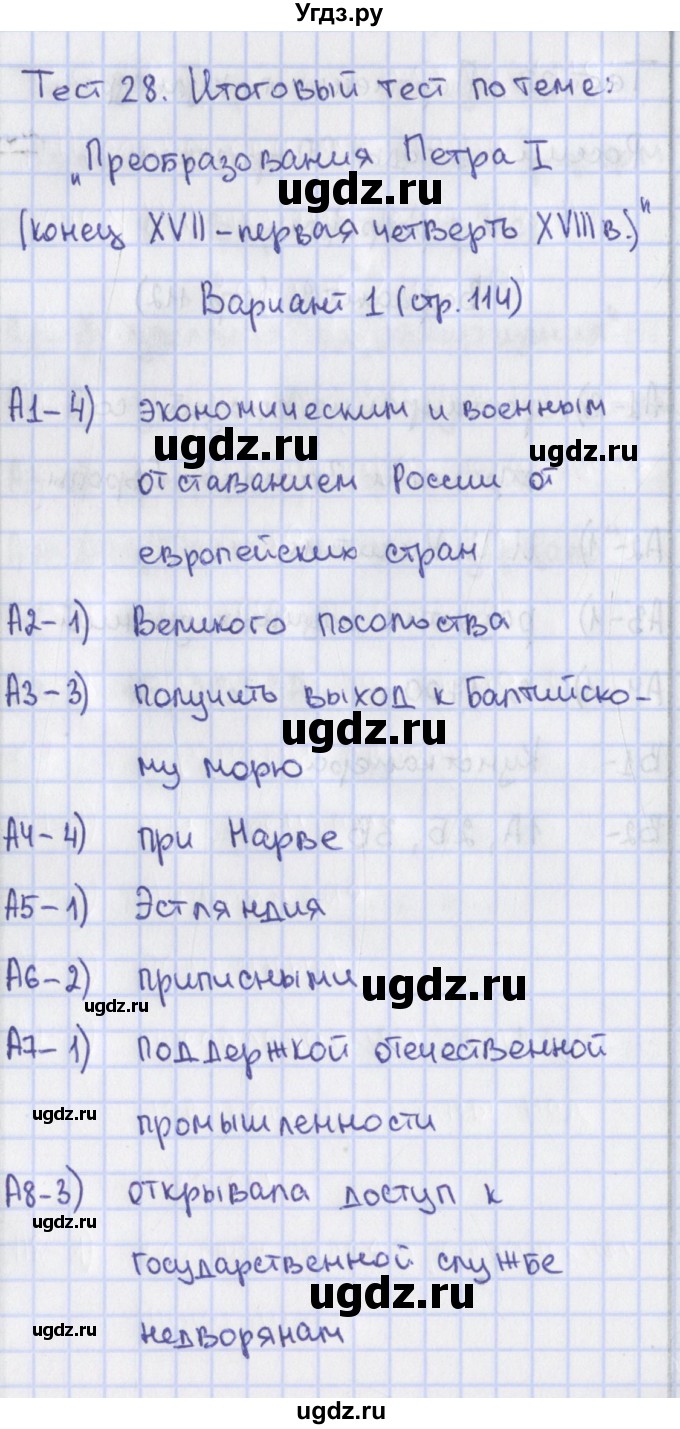 Угдз.ру
Тест 28. Итоговый тест по теме:
"Преобразования Петра I
ugdz.ru
(конец XVII - первая четверть XVIII в.)"
Вариант 1 (стр. 114)
А1 - 4) экономическим и военным
ugdz.ru
ugdz.ru
отставанием России от
европейских стран
А2 - 1) Великого посольства
А3 - 3) получить выход к Балтийско-
ugdz.ru
му морю
А4 - 4) при Нарве
А5 - 1) Эстляндия
А6 - 2) приписными
ugdz.ru
ugdz.ru
А7 - 1) поддержкой отечественной
ugdz.ru
промышленности
А8 - 3) открывала доступ к
ugdz.ru
государственной службе
ugdz.ru
ugdz.ru
недворянам
ugdz.ru